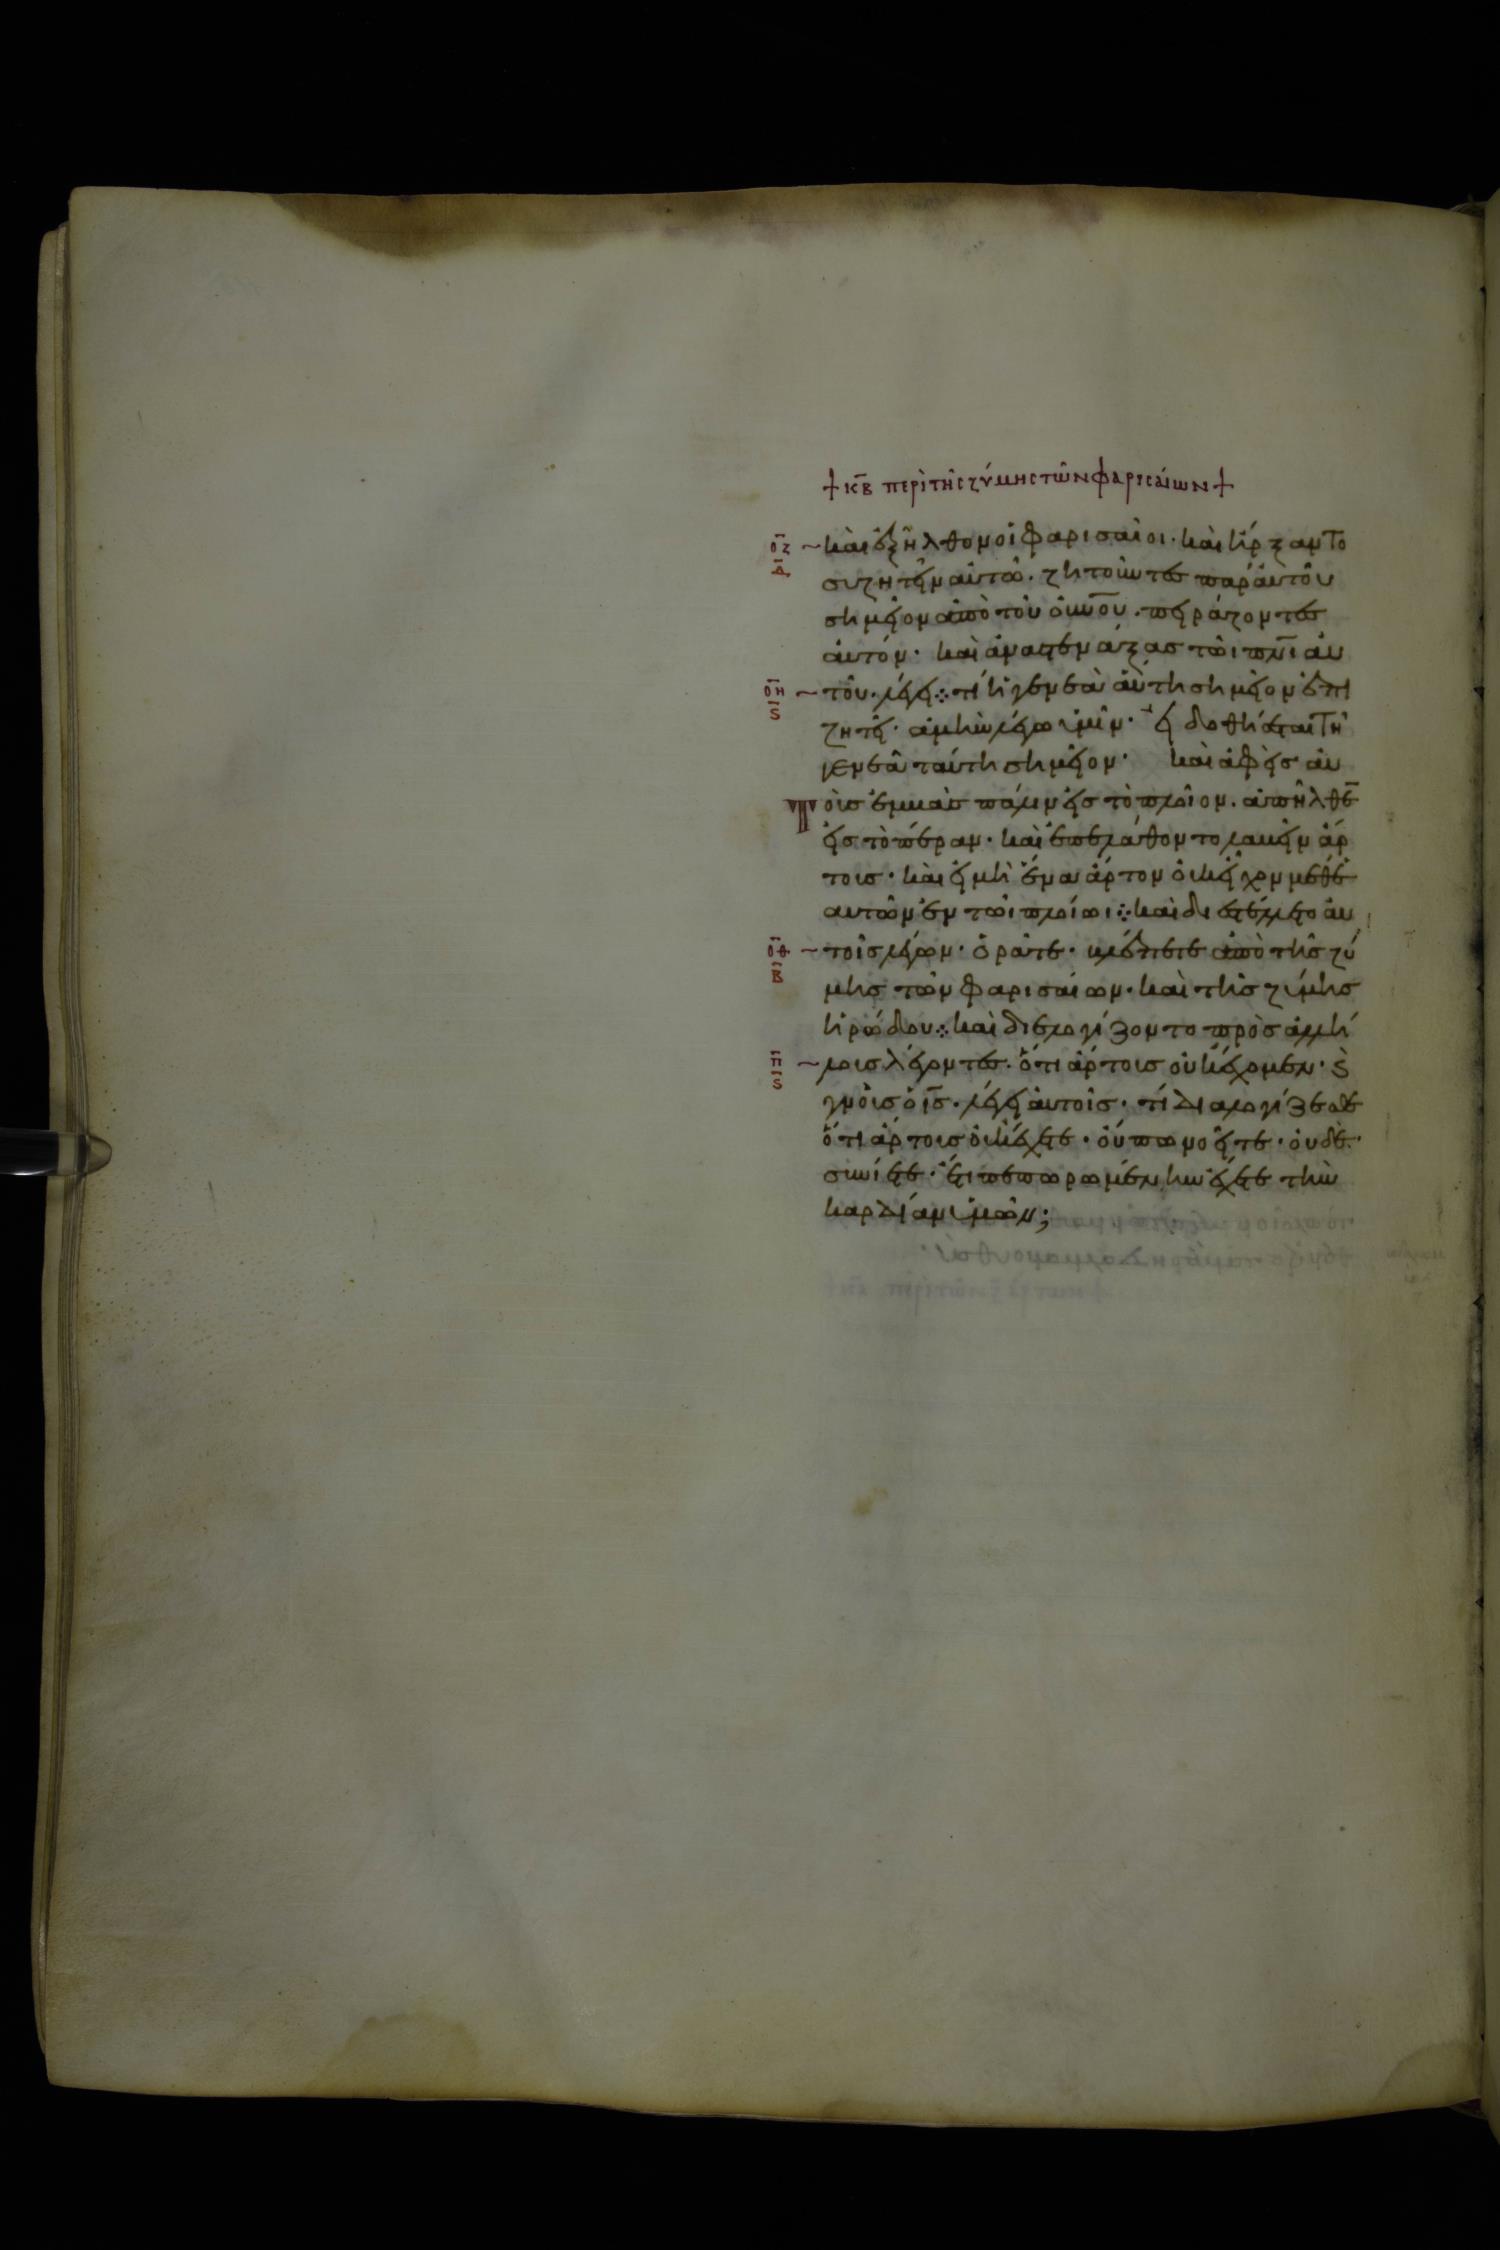 + κ̅β̅ περὶ τῆς ζύμης τῶν φαρισαίων +
ο̅ζ̅ ~ καὶ ἐξῆλθον οἱ φαρισαῖοι· καὶ ἤρξαντο
δ̅ συζητεῖν αὐτῶ· ζητοῦντες παρ' αὐτοῦ
σημεῖον ἀπὸ τοῦ ο̅υ̅ν̅ο̅υ̅· πειράζοντες
αὐτόν· καὶ ἀναστενάξας τῶι π̅ν̅ι̅ αὐ
ο̅η̅ ~ τοῦ· λέγει⁘ τί ἡ γενεὰ αὕτη σημεῖον ἐπι
ϛ̅ ζητεῖ· ἀμὴν λέγω ὑμῖν· εἰ δοθήσεται τῆ
γενεᾶ ταύτη σημεῖον· καὶ ἀφεὶς αὐ
τοὺς ἐμβὰς πάλιν εἰς τὸ πλοῖον· ἀπῆλθε̅
εἰς τὸ πέραν· καὶ ἐπελάθοντο λαβεῖν ἄρ
τους· καὶ εἰ μὴ ἕνα ἄρτον οὐκ εἶχον μεθ' ἑ
αυτῶν ἐν τῶι πλοίωι⁘ καὶ διεστέλλετο αὐ
ο̅θ̅ ~ τοῖς λέγων· ὁρᾶτε· βλέπετε ἀπὸ τῆς ζύ
β̅ μης τῶν φαρισαίων· καὶ τῆς ζύμης
ἡρώδου⁘ καὶ διελογίζοντο πρὸς ἀλλή
π̅ ~ λους λέγοντες· ὅτι ἄρτους οὐκ ἔχομεν· κ̀
ϛ̅ γνοὺς ὁ ι̅ς̅· λέγει αὐτοῖς· τί διαλογίζεσθε
ὅτι ἄρτους οὐκ ἔχετε· οὔπω νοεῖτε· οὐδὲ
συνίετε· ἔτι πεπωρωμένην ἔχετε τὴν
καρδίαν ὑμῶν;